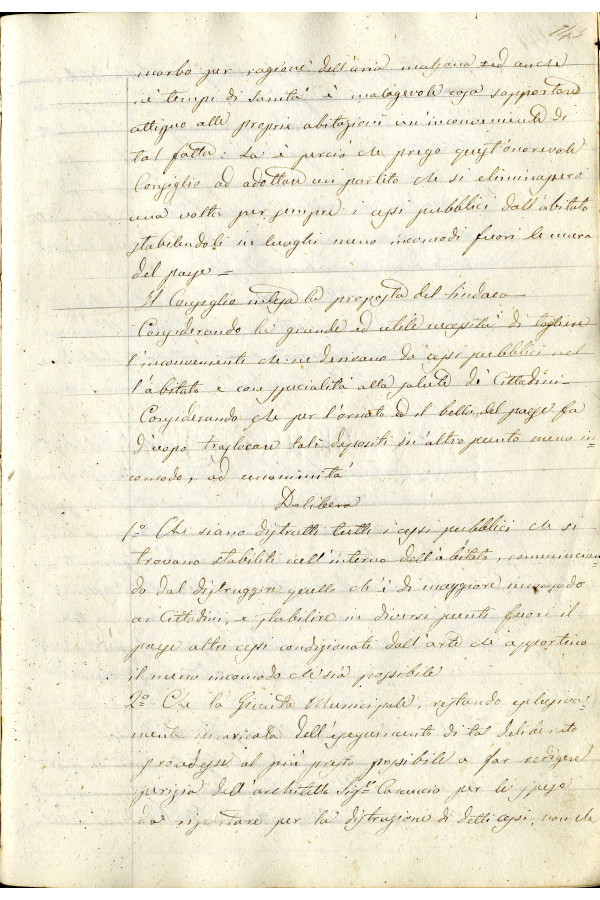 morbo per ragione dell'aria malsana ed anche
ne' tempi di sanità è malagevole cosa sopportare
attiguo alle proprie abitazioni un'inconveniente di
tal fatta: La è perciò che prego quest'onorevole
Consiglio ad adottare un partito che si eliminassero
una volta per sempre i cessi pubblici dall'abitato
stabilendoli in luoghi meno incomodi fuori le mura
del paese =
Il Consiglio intesa la proposta del Sindaco
Considerando la grande ed utile necessità di togliere
l'inconvenienti che ne derivano da' cessi pubblici nel
l'abitato e con specialità alla salute di' Cittadini =
Considerando che per l'ornato ed il bello del paese fa
d'uopo traslocare tali depositi in altro punto meno in=
comodo, ad unanimità
Delibera
1º Che siano distrutti tutti i cessi pubblici che si
trovano stabiliti nell'interno dell'abitato, comincian=
do dal distruggere quello ch'è di maggiore incomodo
ai Cittadini, e stabilire in diversi punti fuori il
paese altri cessi condizionati dall'arte che apportino
il meno incomodo che sia possibile
2º Che la Giunta Municipale, restando esclusiva=
mente incaricata dell'eseguimento di tal deliberato
procedesse al più presto possibile a far redigere
perizia dell'architetto Sigr. per le spese
da riportare per la distruzione di detti cessi, non che